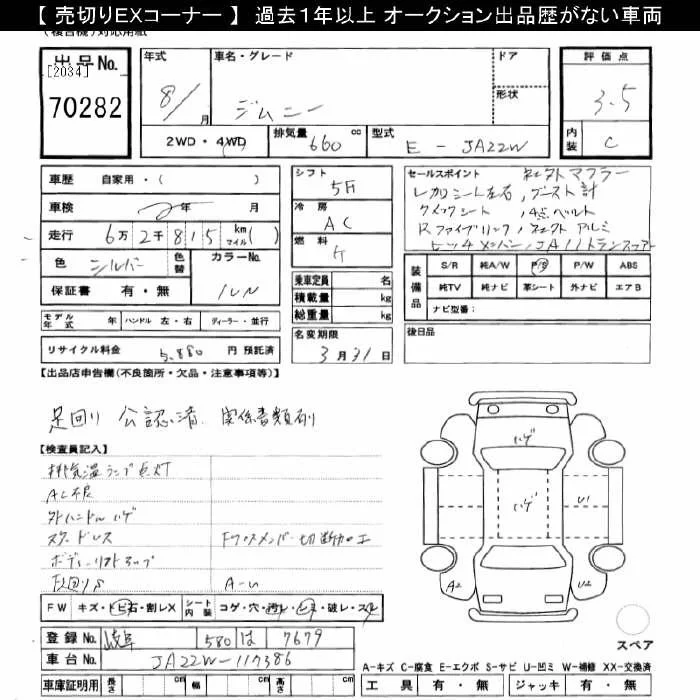 【 売切りEXコーナー 】 過去１年以上 オークション出品歴がない車両
(複合機)対応用紙
出品No.
[2034]
70282
年式 8/月
車名・グレード ジムニー
ドア
形状
評価点 3.5
内装 C
2WD・4WD
排気量 660 cc
型式 E - JA22W
車歴 自家用・( )
車検 年 月
走行 6万2千815 km マイル( )
色 シルバー 色替
カラーNo. 1UN
保証書 有・無
シフト 5F
冷房 AC
燃料
乗車定員 名
積載量 kg
総重量 kg
セールスポイント 社外マフラー
レカロシート左右,ブースト計
クイックシート,4点ベルト
Rファイプリンク,社外アルミ
ピッチメンバー,JA11トランスファー
装備品 S/R 純A/W P/S P/W ABS
純TV 純ナビ 革シート 外ナビ エアB
ナビ型番:
モデル年式 年 ハンドル 左・右 ディーラー・並行
リサイクル料金 5,880 円 預託済
名変期限 3月31日
後日品
【出品店申告欄(不良箇所・欠品・注意事項等)】
足回り 公認済 関係書類有り
【検査員記入】
排気温ランプ点灯
AC不良
外ハンドルハゲ
スタッドレス
Fクロスメンバー切断加工
ボディーリフトアップ
下回りS
A-U
FW キズ・トビ石・割レX シート内装 コゲ・穴・汚レ・シミ・破レ・スレ
登録No. 岐阜 580 は 7679
車台No. JA22W-117386
車庫証明用 長さ cm 幅 cm 高さ cm
ハゲ
ハゲ
U1
A2
U2
スペア
A-キズ C-腐食 E-エクボ S-サビ U-凹ミ W-補修 XX-交換済
工具 有・無 ジャッキ 有・無